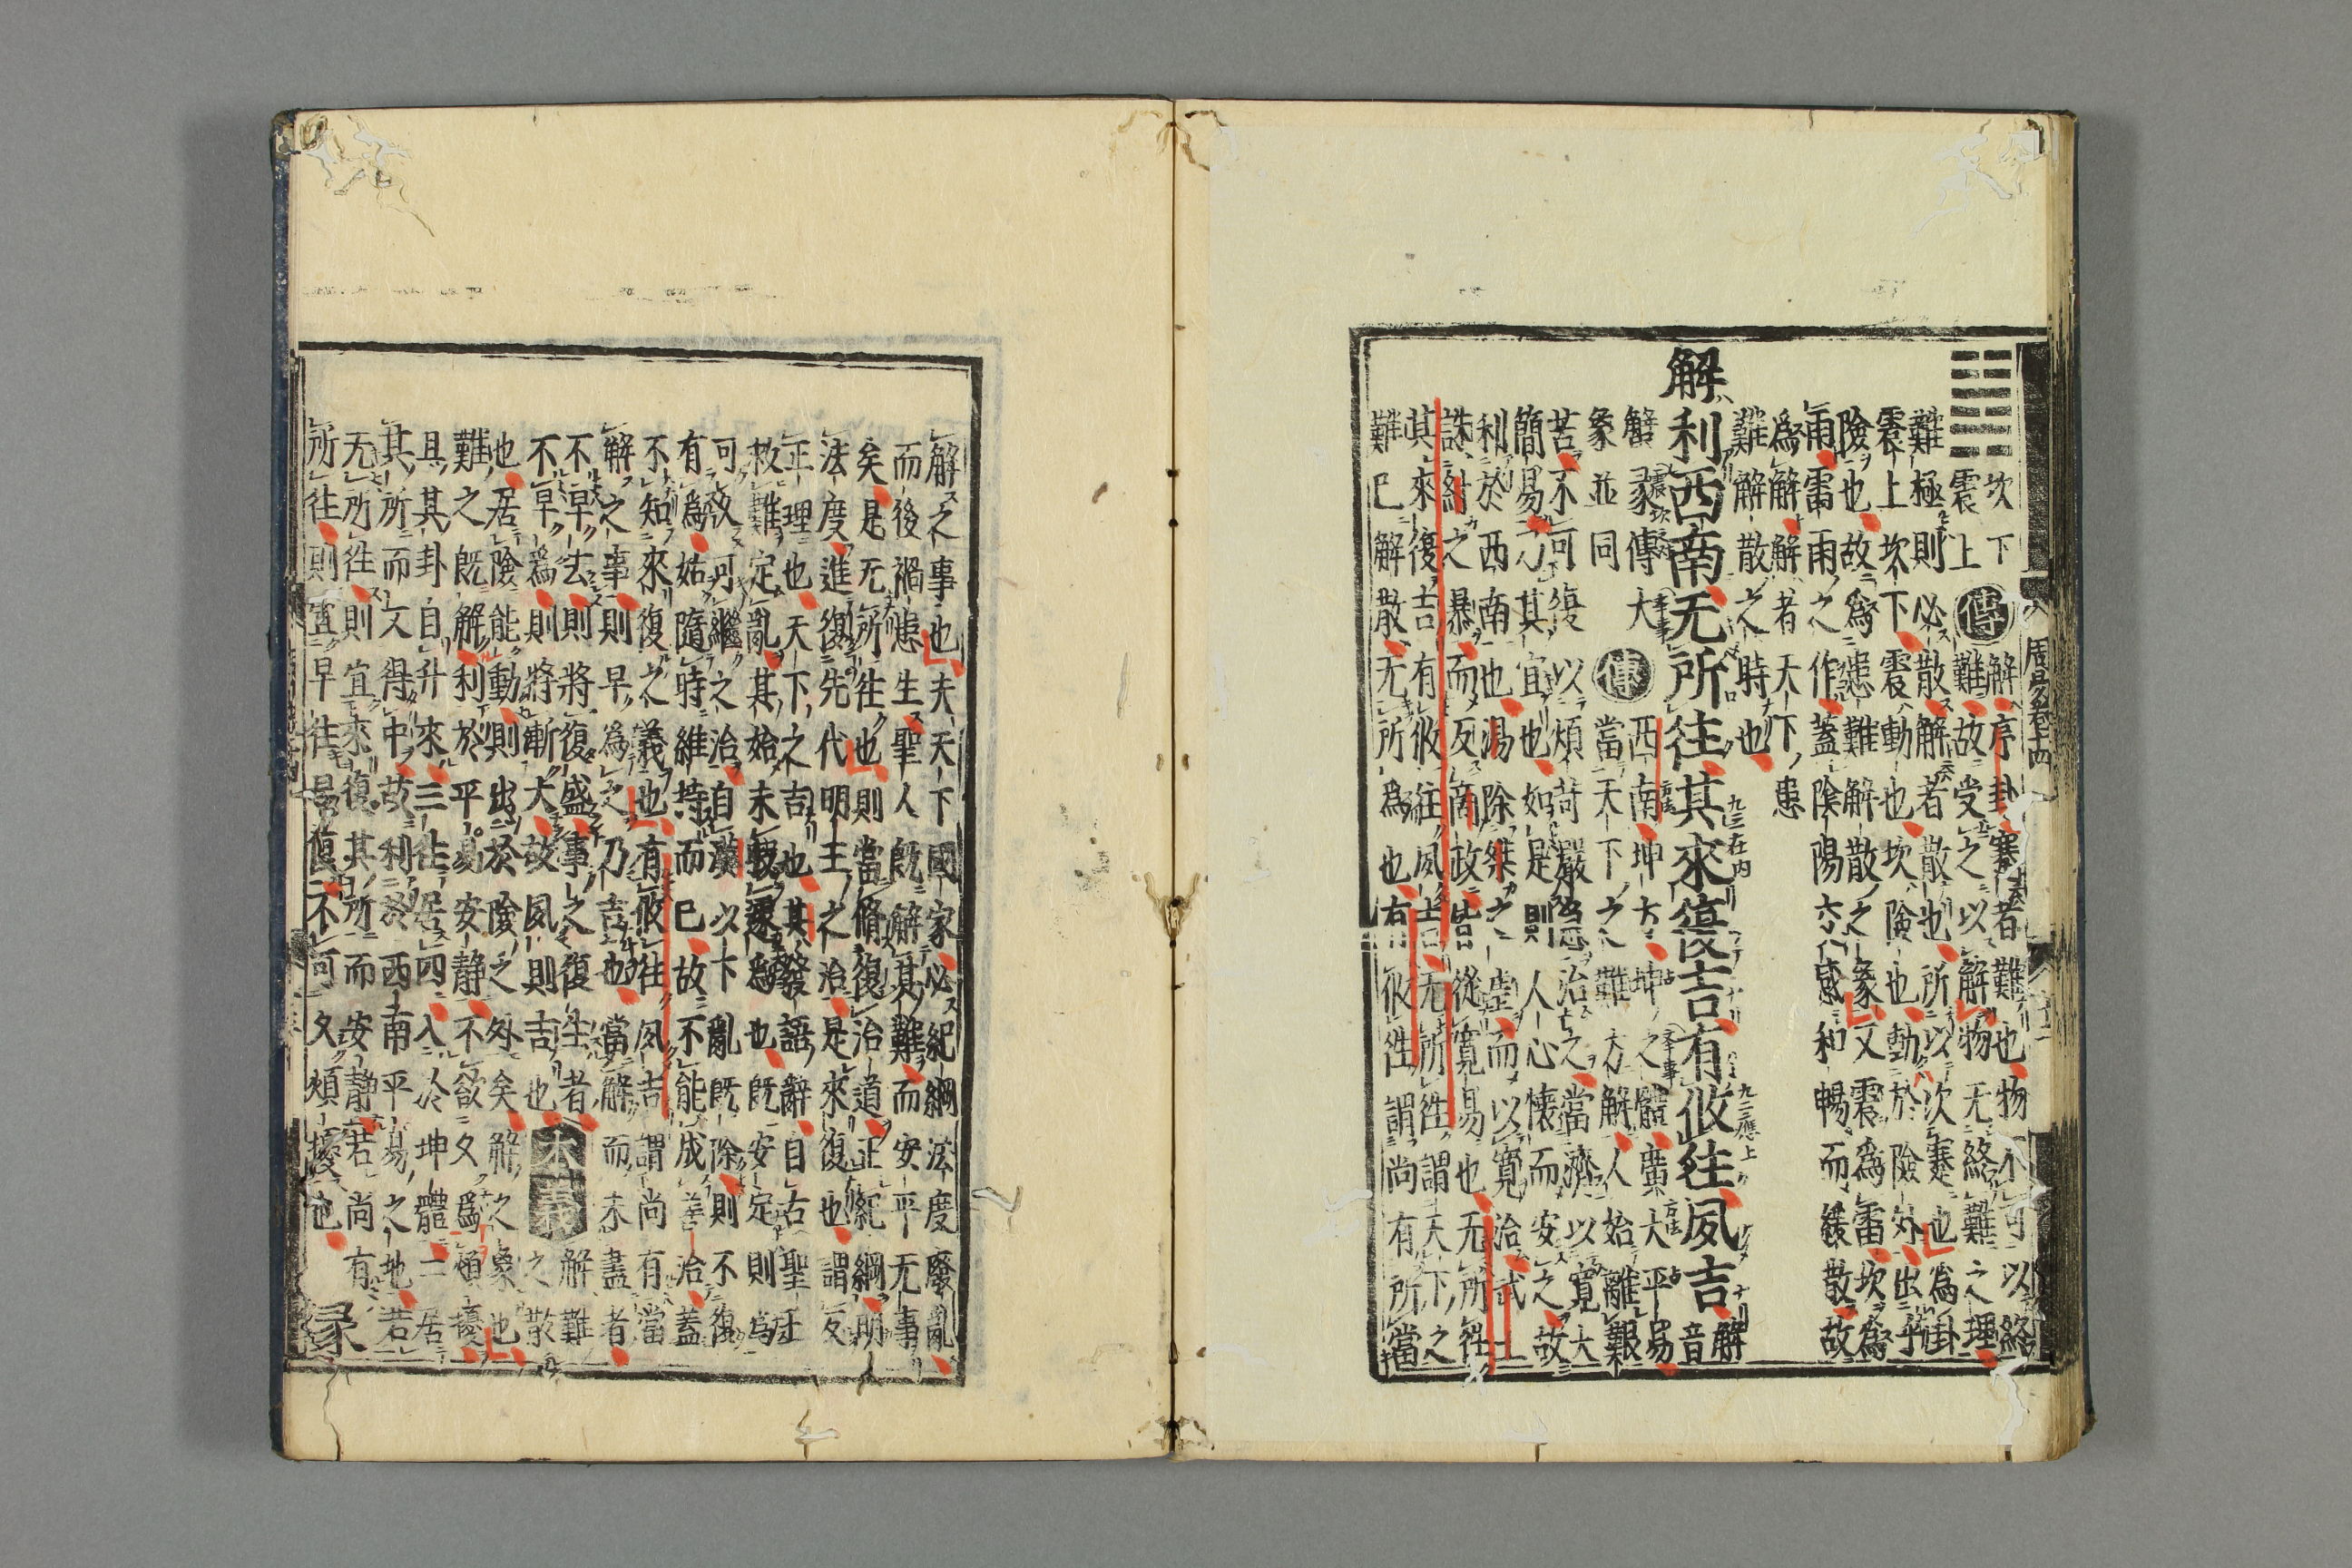 周易卷十四
坎下 傳 解序卦蹇者難也物不可以終
震上 難故受之以解物无終難之理
難極則必散解者散也所以次蹇也爲卦
震上坎下震動也坎險也動於險外出乎
險也故爲患難解散之象又震爲雷坎爲
雨雷雨之作蓋陰陽交感和暢而緩散故
爲解解者天下患
難解散之時也
解利西南无所往其來復吉有攸往夙吉 解音
蟹彖傳大
象並同 傳 西南坤方坤之體廣大平易
當天下之難方解人始離艱
苦不可復以煩苛嚴急治之當濟以寬大
簡易乃其宜也如是則人心懷而安之故
利於西南也湯除桀之虐而以寬治武王
誅紂之暴而反商政皆從寬易也无所往
其來復吉有攸往夙吉无所往謂天下之
難已解散无所爲也有攸往謂尚有所當
解之事也夫天下國家必紀綱法度廢亂
而後禍患生聖人既解其難而安平无事
矣是无所往也則當脩復治道正紀綱明
法度進復先代明王之治是來復也謂反
正理也天下之吉也其發語辭自古聖王
救難定亂其始未暇遽爲也既安定則爲
可久可繼之治自漢以下亂既除則不復
有爲姑隨時維持而已故不能成善治蓋
不知來復之義也有攸往夙吉謂尚有當
解之事則早爲之乃吉也當解而未盡者
不早去則將復盛事之復生者
不早爲則將漸大故夙則吉也 本義 解難
之散
也居險能動則出於險之外矣解之象也
難之既解利於平易安靜不欲久爲煩擾
且其卦自升來三往居四入於坤體二居
其所而又得中故利於西南平易之地若
无所往則宜來復其所而安靜若尚有
所往則宜早往早復不可久煩擾也 彖